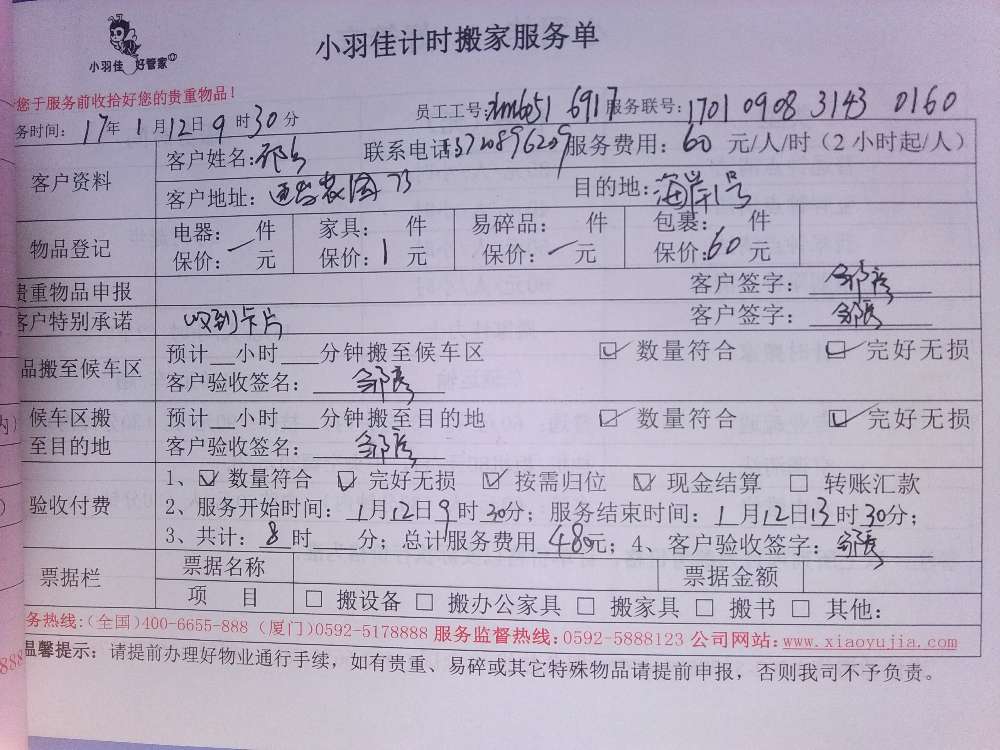 小羽佳 好管家
小羽佳计时搬家服务单
您于服务前收拾好您的贵重物品！
务时间： 17年 1月12日 9时30分 员工工号： 6917 服务联号：1701 0908 3143 0160
客户资料 客户姓名： 联系电话 服务费用：60元/人/时（2小时起/人）
客户地址： 目的地：海岸1号
物品登记 电器： 件 家具： 件 易碎品： 件 包裹： 件
保价：一 元 保价：1元 保价：一 元 保价：60元
贵重物品申报 客户签字：邹彦
客户特别承诺 收到卡片 客户签字：邹彦
品搬至候车区 预计 小时 分钟搬至候车区 ☑数量符合 ☑完好无损
客户验收签名：邹彦
候车区搬至目的地 预计 小时 分钟搬至目的地 ☑数量符合 ☑完好无损
客户验收签名：邹彦
验收付费 1、☑数量符合 ☑完好无损 ☑按需归位 ☑现金结算 □转账汇款
2、服务开始时间：1月12日9时30分；服务结束时间：1月12日13时30分；
3、共计：8时 分；总计服务费用480元；4、客户验收签字：邹彦
票据栏 票据名称 票据金额
项 目 □搬设备 □搬办公家具 □搬家具 □搬书 □其他：
务热线:(全国)400-6655-888 (厦门)0592-5178888 服务监督热线:0592-5888123 公司网站:www.xiaoyujia.com
温馨提示：请提前办理好物业通行手续，如有贵重、易碎或其它特殊物品请提前申报，否则我司不予负责。